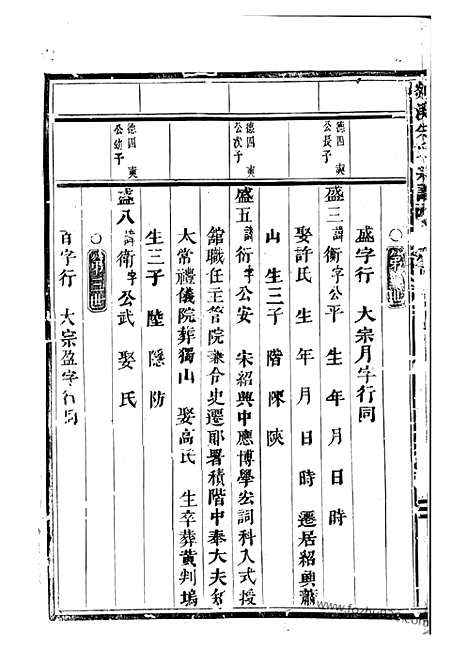 盛字行　大宗月字行同
德四爽公長子
盛三諱衡字公平　生　年　月　日　時
娶許氏　生　年　月　日　時　遷居紹興蕭
山　生三子　階　陳　陝
德四爽公次子
盛五諱衍字公安　宋紹興中應博學宏詞科入式授
館職任主管院兼令史遷郎署積階中奉大夫知
大常禮儀院葬獨山　娶高氏　生卒葬黃判塢
生三子　陸　隱　防
德四爽公幼子
盛八諱衛字公武　娶　氏
第三世
百字行　大宗盈字行同